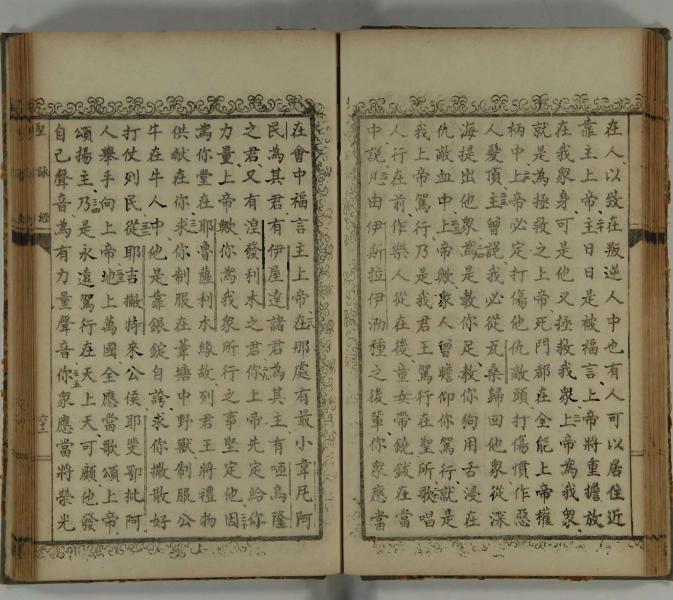 在人以致在叛逆人中也有人可以居住近
靠主上帝主日日是被福言上帝將重擔放
在我衆身可是他又拯救我衆上帝為我衆
就是為拯救之上帝死門都在全能上帝權
柄中上帝必定打傷他仇敵頭打傷慣作惡
人髮頂主曾說我必從瓦桑歸回他衆從深
海提出他衆為是教你足教你狗用舌浸在
仇敵血中上帝歟衆人曾瞻仰你駕行就是
我上帝駕行乃是我君王駕行在聖所歌唱
人行在前作樂人從在後童女帶鐃鈸在當
中說凡由伊斯拉伊泐種之後輩你衆應當
在會中福言主上帝在那處有最小韋尼阿
民為其君有伊屋達諸君為其主有咂烏隆
之君又有湟發利木之君你上帝先定給你
力量上帝歟你為我衆所行之事堅定他因
為你堂在耶魯薩利木緣故列君王將禮物
供獻在你求你制服在葦塘中野獸制服公
牛在牛人中他是靠銀錠自誇求你撒散好
打仗列民從耶吉撇特來公侯耶斐鄂批阿
人舉手向上帝地上萬國全應當歌頌上帝
頌揚主乃是永遠駕行在天上天可顧他發
自己聲音為有力量聲音你衆應當將榮光
聖詠經